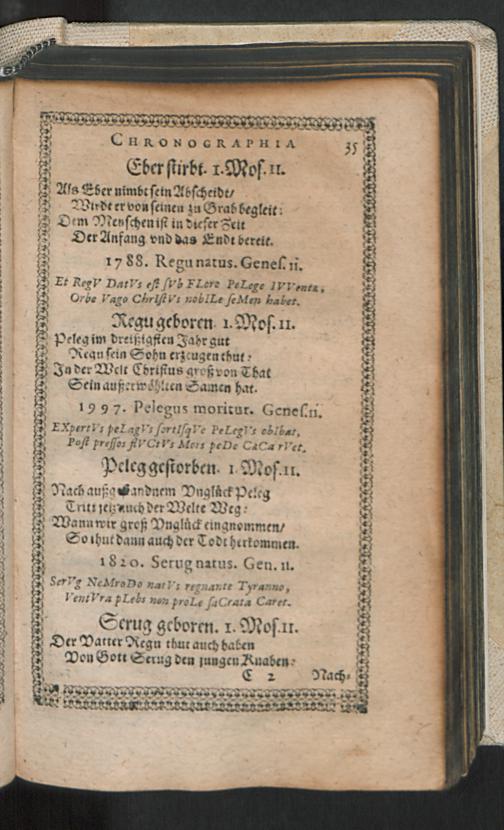 CHRONOGRAPHIA 35
Eber stirbt. 1. Mos. 11.
Als Eber nimbt sein Abscheidt/
Wirdt er von seinen zu Grab begleit:
Dem Menschen ist in dieser Zeit
Der Anfang vnd das Endt bereit.
1788. Regu natus. Genes. 11.
Et RegV DatVs est sVb FLore PeLego IVVenta,
Orbe Vago ChrIstVs nobILe seMen habet.
Regu geboren. 1. Mos. 11.
Peleg im dreißigsten Jahr gut
Regu sein Sohn erzeugen thut:
In der Welt Christus groß von That
Sein außerwöhlten Samen hat.
1997. Pelegus moritur. Genes. 11.
EXpertVs peLagVs fortIsqVe PeLegVs obIbat,
Post pressos flVCtVs Mors peDe CæCa rVet.
Peleg gestorben. 1. Mos. 11.
Nach außgstandnem Vnglück Peleg
Tritt jetz auch der Welte Weg:
Wann wir groß Vnglück eingnommen/
So thut dann auch der Todt herkommen.
1820. Serug natus. Gen. 11.
SerVg NeMroDo natVs regnante Tyranno,
VentVra pLebs non proLe saCrata Caret.
Serug geboren. 1. Mos. 11.
Der Vatter Regu thut auch haben
Von Gott Serug den jungen Knaben:
C 2 Nach-